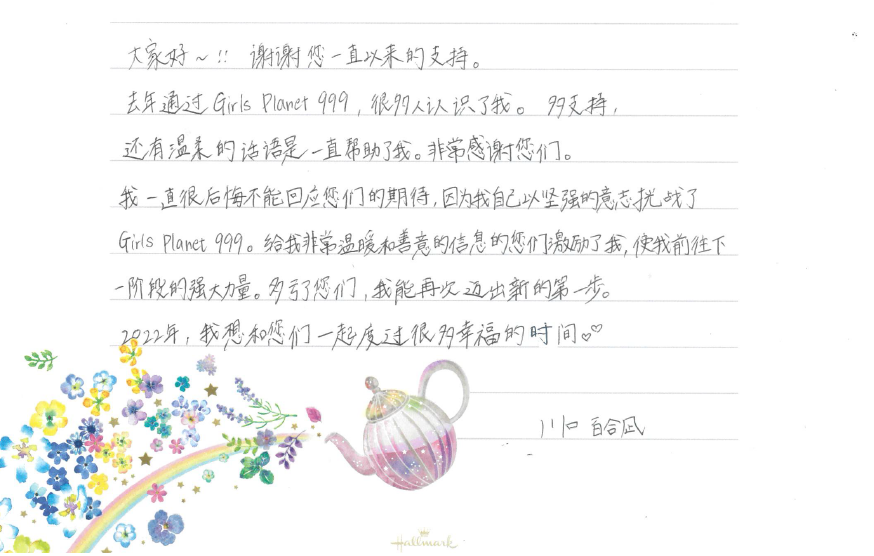 大家好～!! 谢谢您一直以来的支持。
去年通过 Girls Planet 999，很多人认识了我。 多支持，
还有温柔的话语是一直帮助了我。非常感谢您们。
我一直很后悔不能回应您们的期待，因为我自己以坚强的意志挑战了
Girls Planet 999。给我非常温暖和善意的信息的您们激励了我，使我前往下
一阶段的强大力量。多亏了您们，我能再次迈出新的第一步。
2022年，我想和您们一起度过很多幸福的时间♡♡
川口 百合凪
Hallmark